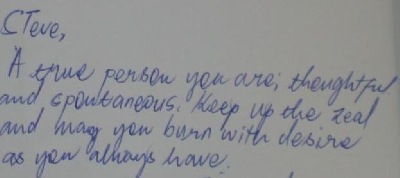 Steve,
A true person you are; thoughtful
and spontaneous. Keep up the zeal
and may you burn with desire
as you always have.